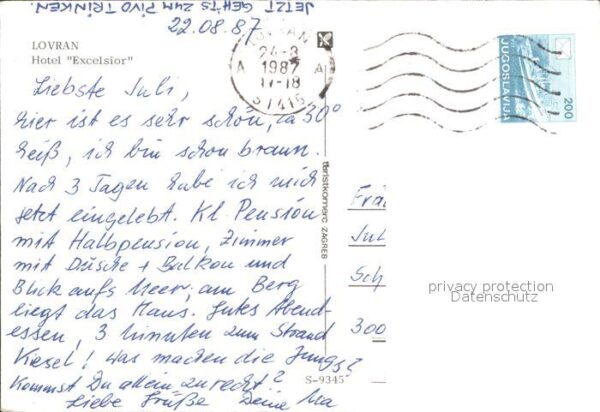 JETZT GEHTS ZUM PIVO TRINKEN.
22.08.87
LOVRAN
Hotel "Excelsior"
Liebste Juli,
hier ist es sehr schön, ca 30°
heiß, ich bin schon braun.
Nach 3 Tagen habe ich mich
jetzt eingelebt. Kl. Pension
mit Halbpension, Zimmer
mit Dusche + Balkon und
Blick aufs Meer, am Berg
liegt das Haus. Gutes Abend-
essen, 3 Minuten zum Strand
Kiesel! Was machen die Jungs?
Kommst Du allein zurecht?
Liebe Grüße Deine
LOVRAN
24-8
1987
A A
17-18
51416
JUGOSLAVIJA
200
turistkomerc ZAGREB
S-9345
Jul
Sch
300
privacy protection
Datenschutz